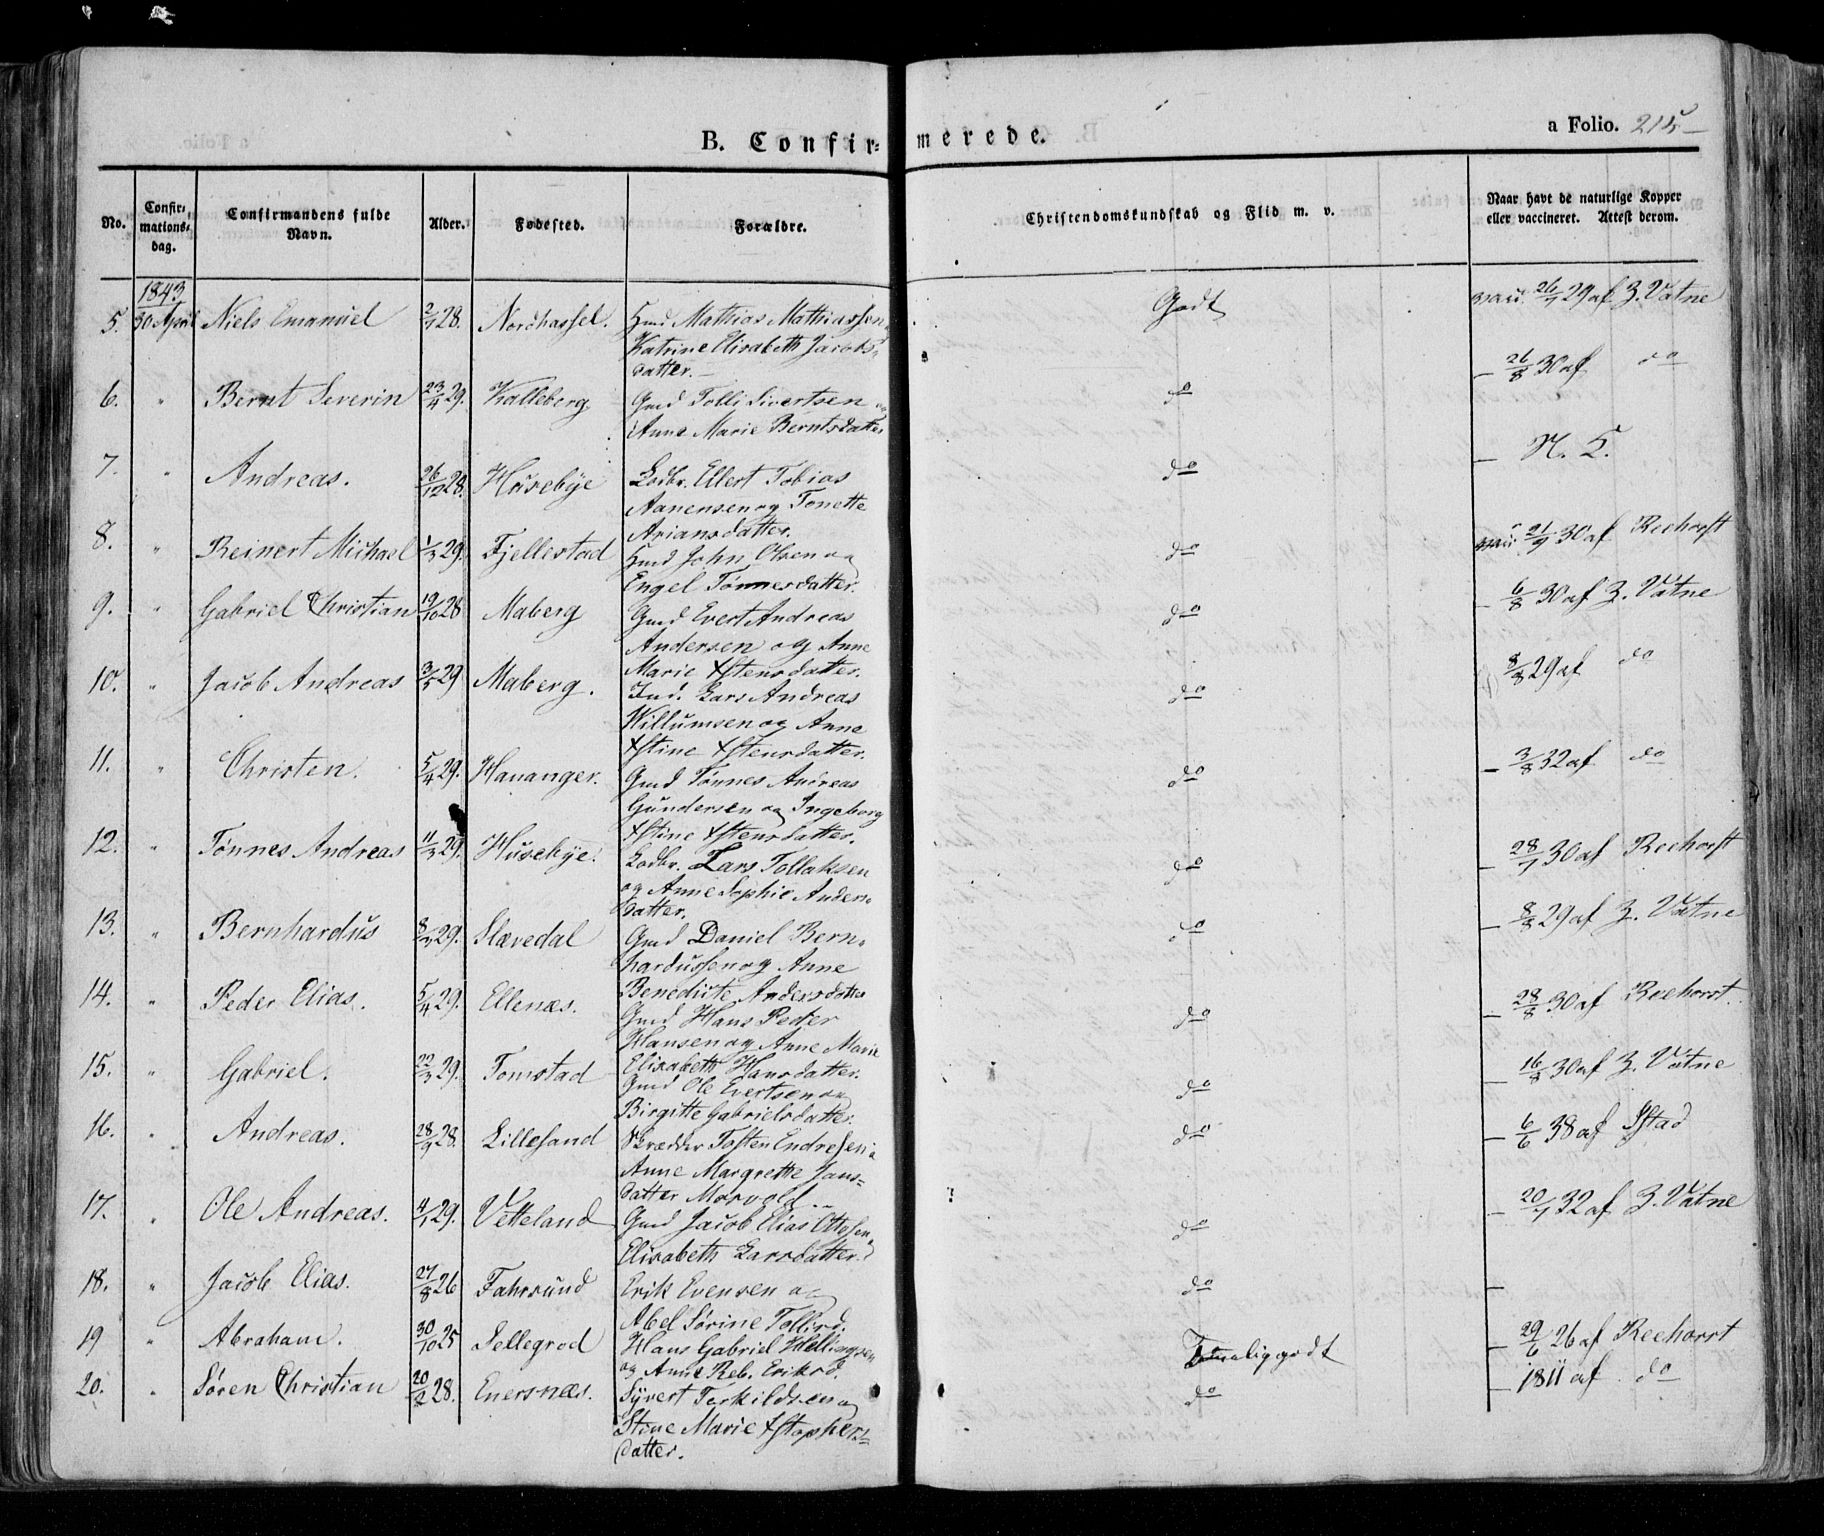 B. Confirmerede.
a Folio. 215
No.
Confirmationsdag.
Confirmandens fulde Navn.
Alder.
Fødested.
Forældre.
Christendomskundskab og Flid m. v.
Naar havt de naturlige Kopper eller vaccineret. Attest derom.
1843
5. 30 April Niels Emanuel 2/1 28. Nordhassel. Gmd Mathias Mathiassen Godt vacc. 26/7 29 af Z. Vatne
Katrine Elisabeth Jacobs-
datter.
6. " Bernt Severin 23/4 29. Kalleberg Gmd Tolli Sivertsen og do – 26/8 30 af do
Anne Marie Berntsdatter
7. " Andreas. 26/12 28. Husebye Lodbr. Ellert Tobias do – N. S.
Aanensen og Tonette
Ariansdatter.
8. " Reinert Michael 1/3 29. Fjellestad Gmd John Olsen og do vacc. 21/9 30 af Reehorst
Engel Tønnesdatter.
9. " Gabriel Christian 19/10 28 Maberg Gmd Evert Andreas do – 6/8 30 af Z. Vatne
Andersen og Anne
Marie Xstensdatter.
10. " Jacob Andreas 3/5 29 Maberg. Ind. Lars Andreas do 8/8 29 af do
Willumsen og Anne
Xstine Xstensdatter.
11. " Christen. 5/4 29. Hananger. Gmd Tønnes Andreas do – 3/8 32 af do
Gundersen og Ingeborg
Xstine Xstensdatter.
12. " Tønnes Andreas 11/3 29. Husebye. Lodbr. Lars Tollaksen do – 28/7 30 af Reehorst
og Anne Sophie Anders-
datter.
13. " Bernhardus 8/3 29. Slævedal Gmd Daniel Bern- do – 8/8 29 af Z. Vatne
hardussen og Anne
Benedicte Andersdatter
14. " Peder Elias. 5/4 29. Ellenæs. Gmd Hans Peder do – 28/8 30 af Reehorst.
Hansen og Anne Marie
Elisabeth Hansdatter.
15. " Gabriel. 22/3 29. Tomstad Gmd Ole Evertsen og do – 16/8 30 af Z. Vatne
Birgitte Gabrielsdatter.
16. " Andreas. 28/9 28. Lillesand Skrædder Tosten Endresen do – 6/6 38 af Ystad
Anne Margrethe Jans-
datter Morvold
17. " Ole Andreas. 4/1 29. Vetteland Gmd Jacob Elias Ottesen do – 20/7 32 af Z. Vatne
Elisabeth Larsdatter.
18. " Jacob Elias. 27/8 26 Fahrsund Erik Evensen og do –
Abel Sørine Tollird.
19 " Abraham. 30/10 25 Sellegrod Hans Gabriel Hellingsen Temelig godt – 29/6 26 af Reehorst
og Anne Reb. Eriksd.
20. " Søren Christian 20/2 28. Enersnæs. Syvert Terkildsen og do – 1811 af do
Stine Marie Xstophers-
datter.